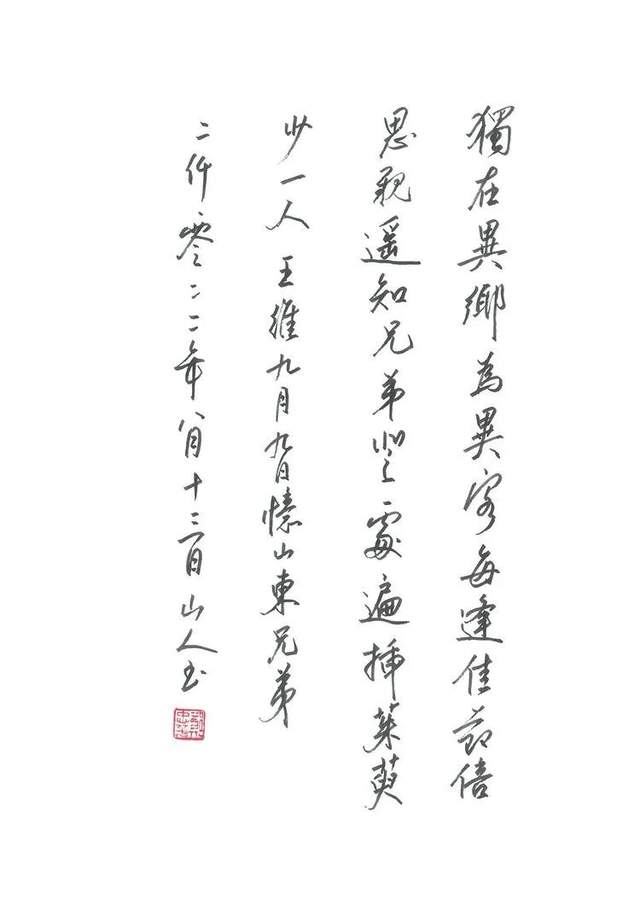 獨在異鄉為異客每逢佳節倍
思親遥知兄弟登處遍插茱萸
少一人 王維九月九日憶山東兄弟
二仟零二二年八月十三日山人书